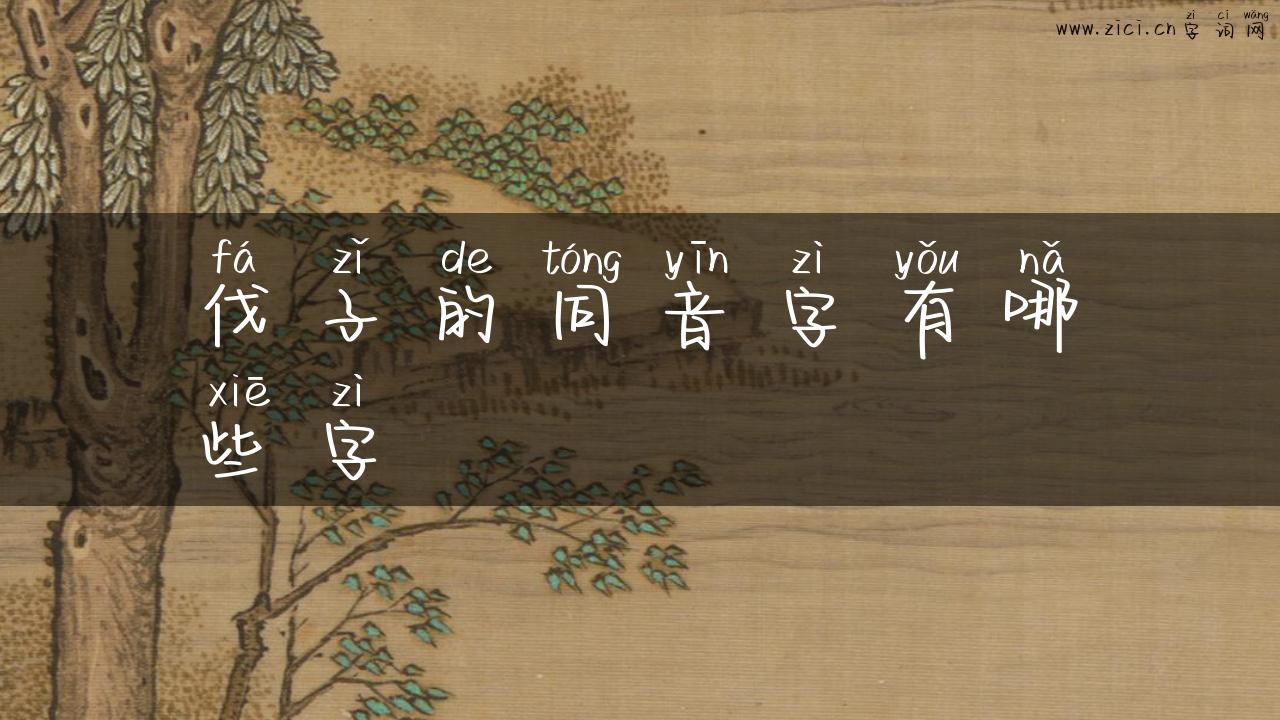 zì cí wǎng
www.zici.cn 字词网
fá zǐ de tóng yīn zì yǒu nǎ
伐子的同音字有哪
xiē zì
些字